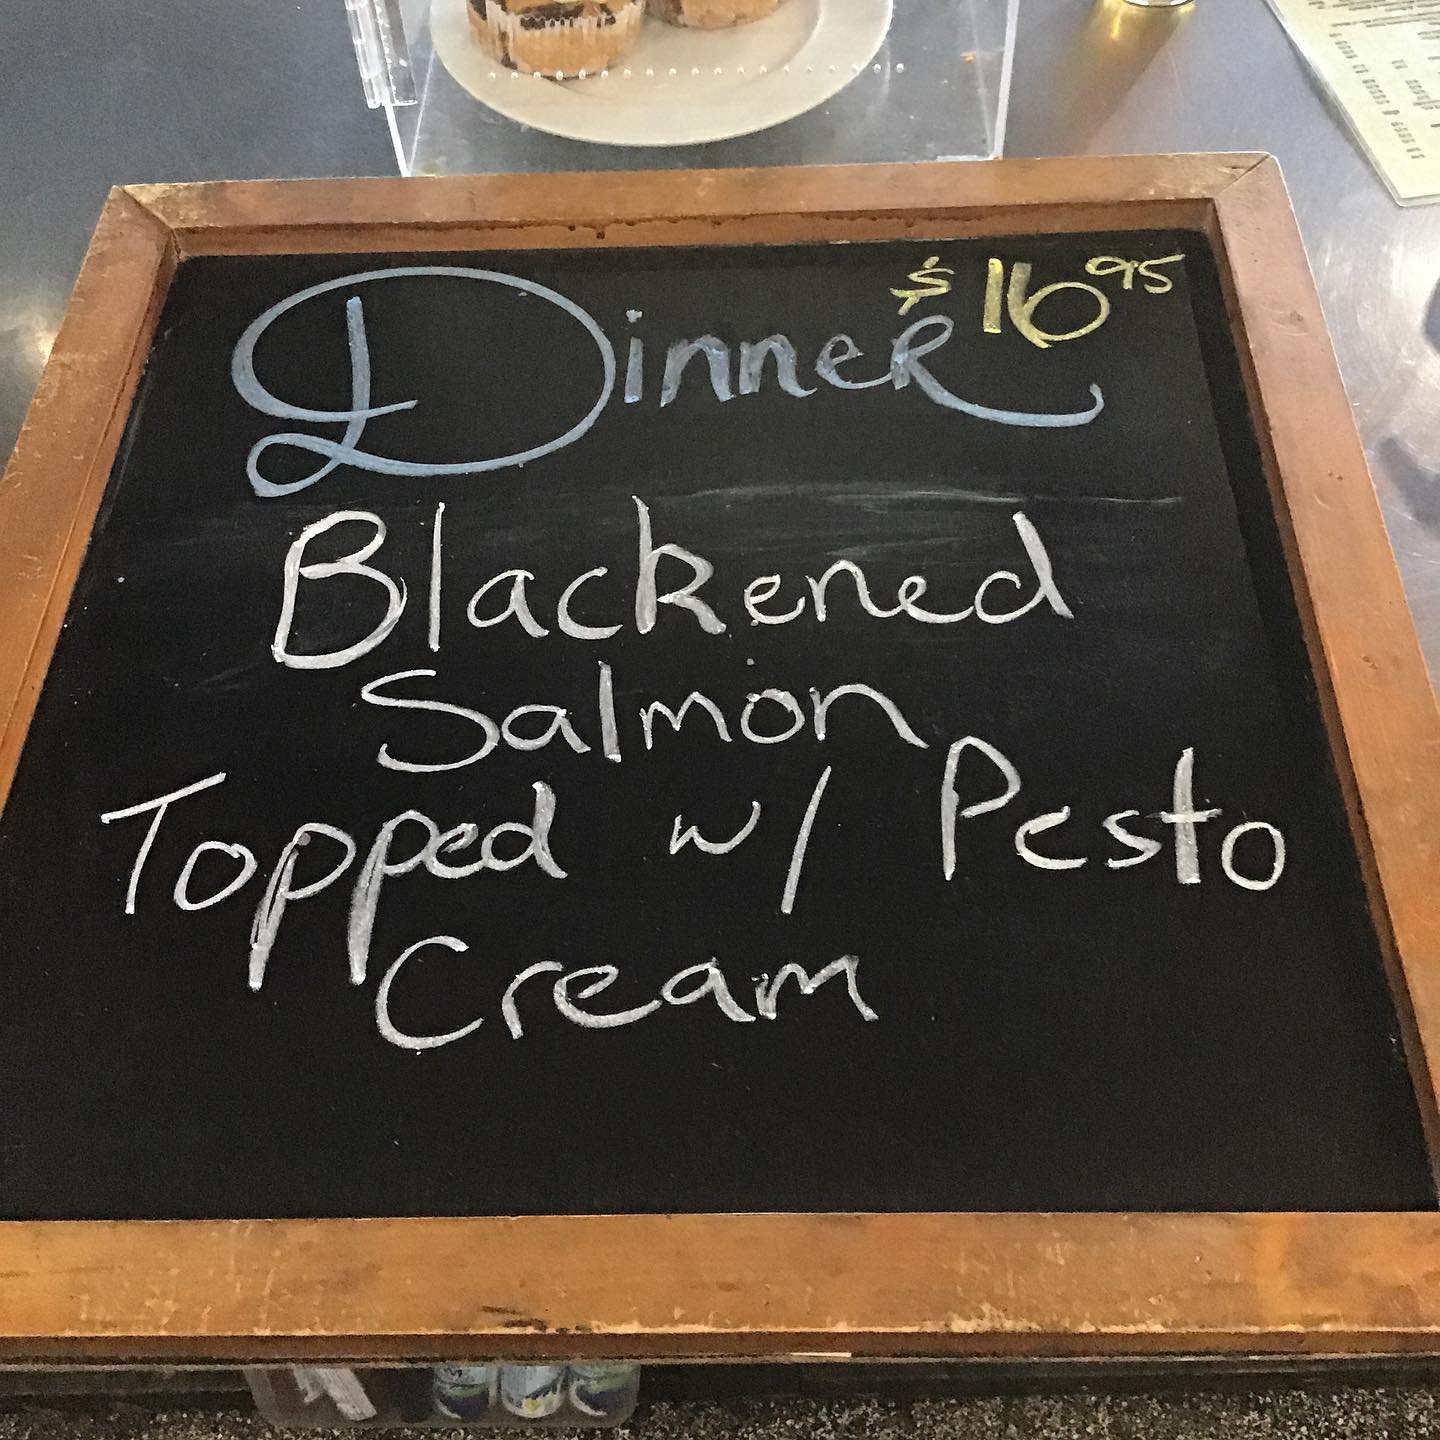 $16.95
Dinner
Blackened
Salmon
Topped w/ Pesto
Cream